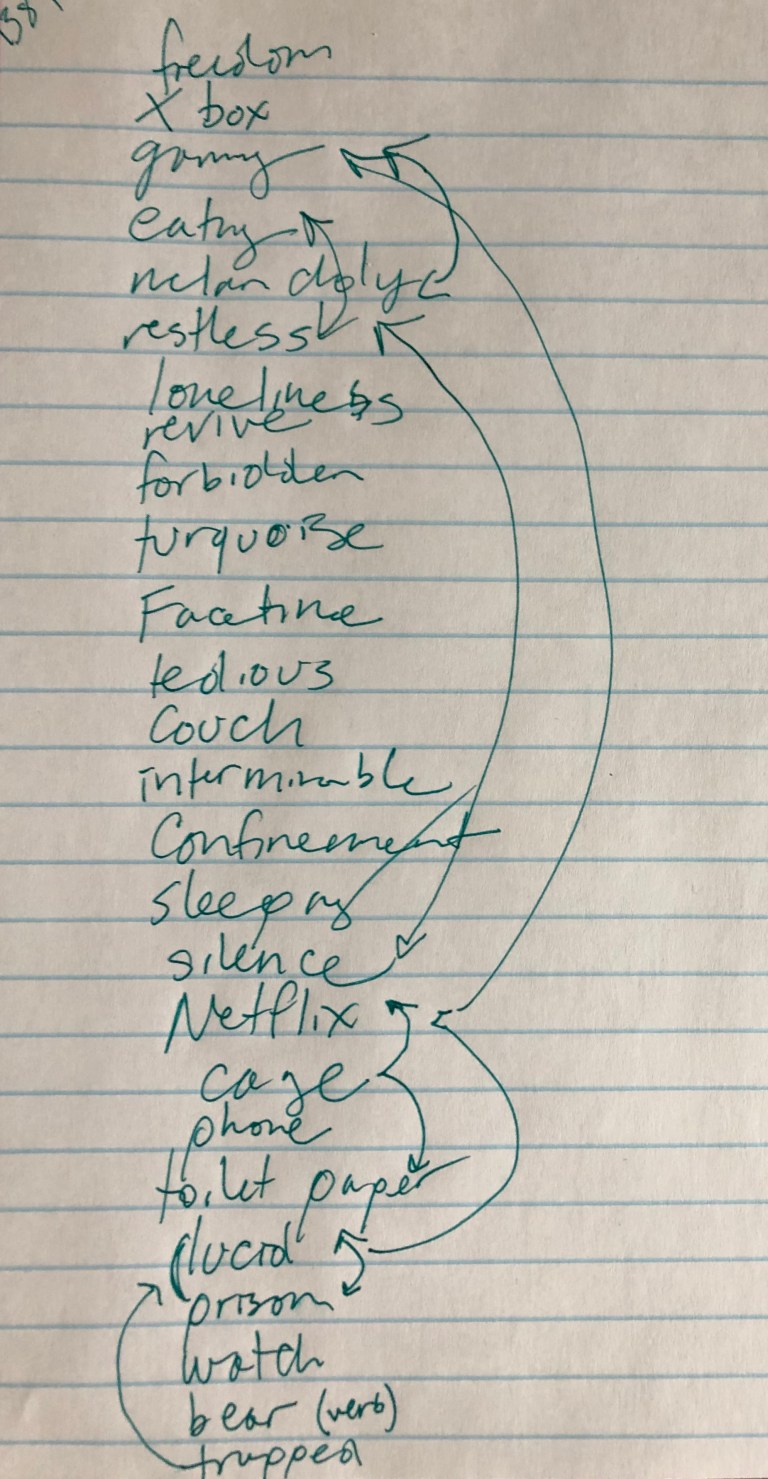 38
freedom
X box
gaming
eating
melancholy
restless
loneliness
revive
forbidden
turquoise
Facetime
tedious
Couch
interminable
Confinement
sleeping
silence
Netflix
cage
phone
toilet paper
lucid
prison
watch
bear (verb)
trapped